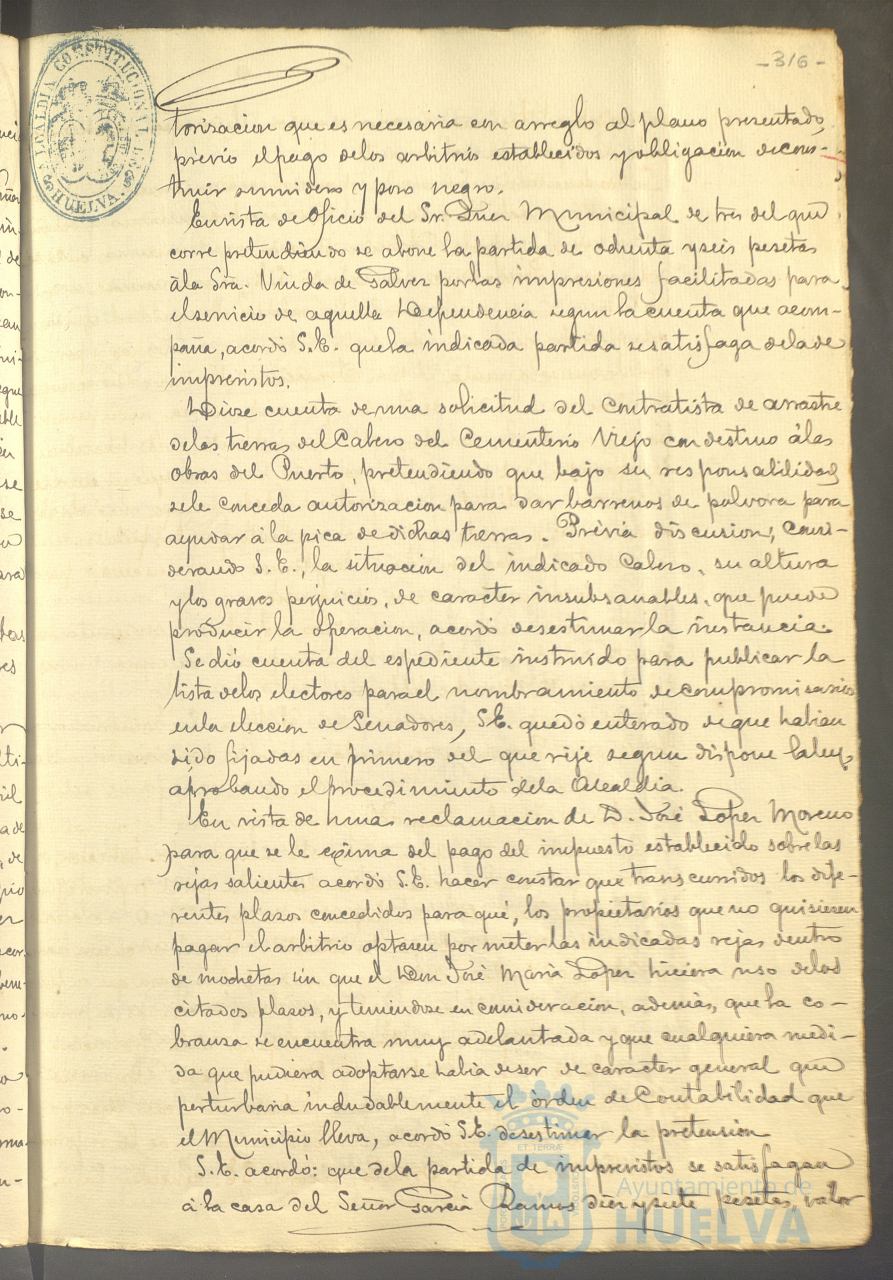 -316-
ALCALDIA CONSTITUCIONAL DE HUELVA
torizacion que es necesaria con arreglo al plano presentado,
prévio el pago delos arbitrios establecidos y obligacion de cons-
truir sumidero y pozo negro.
En vista de Oficio del Sr. Juez Municipal de tres del que
corre pretendiendo se abone la partida de ochenta y seis pesetas
á la Sra. Viuda de Galvez por las impresiones facilitadas para
el servicio de aquella Dependencia segun la cuenta que acom-
paña, acordó S.E. que la indicada partida se satisfaga dela de
imprevistos.
Dióse cuenta de una solicitud del contratista de arrastre
delas tierras del Cabezo del Cementerio Viejo con destino á las
obras del Puerto, pretendiendo que bajo su responsabilidad
se le conceda autorizacion para dar barrenos de polvora para
ayudar á la pica de dichas tierras. Prévia discusion, consi-
derando S.E., la situacion del indicado Cabezo, su altura
y los graves perjuicios, de caracter insubsanables, que puede
producir la operacion, acordó desestimar la instancia.
Se dió cuenta del espediente instruido para publicar la
lista delos electores para el nombramiento de compromisarios
en la eleccion de Senadores, S.E. quedó enterado de que habian
sido fijadas en primero del que rije segun dispone la ley,
aprobando el procedimiento dela Alcaldia.
En vista de una reclamacion de D. José Lopez Moreno
para que se le exima del pago del impuesto establecido sobre las
rejas salientes acordó S.E. hacer constar que transcurridos los dife-
rentes plazos concedidos para qué, los propietarios que no quisiesen
pagar el arbitrio optasen por meter las indicadas rejas dentro
de mochetas sin que el Don José Maria Lopez hiciera uso delos
citados plazos, y teniendose en consideracion, además, que la co-
branza se encuentra muy adelantada y que cualquiera medi-
da que pudiera adoptarse habia de ser de caracter general que
perturbaria indudablemente el órden de Contabilidad que
el Municipio lleva, acordó S.E. desestimar la pretension
S.E. acordó: que dela partida de imprevistos se satisfagan
á la casa del Señor Garcia Ramos diez y siete pesetas, valor
Ayuntamiento de
HUELVA